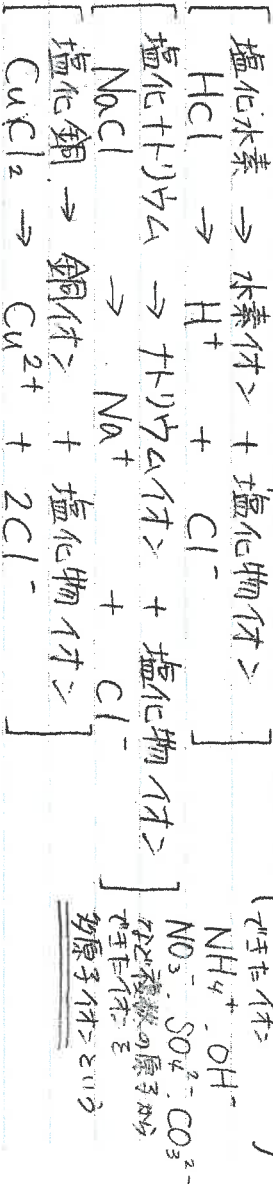 塩化水素 → 水素イオン + 塩化物イオン
HCl → H⁺ + Cl⁻
塩化ナトリウム → ナトリウムイオン + 塩化物イオン
NaCl → Na⁺ + Cl⁻
塩化銅 → 銅イオン + 塩化物イオン
CuCl₂ → Cu²⁺ + 2Cl⁻
できたイオン
NH₄⁺・OH⁻
NO₃⁻・SO₄²⁻・CO₃²⁻
など複数の原子から
できたイオンを
多原子イオンという